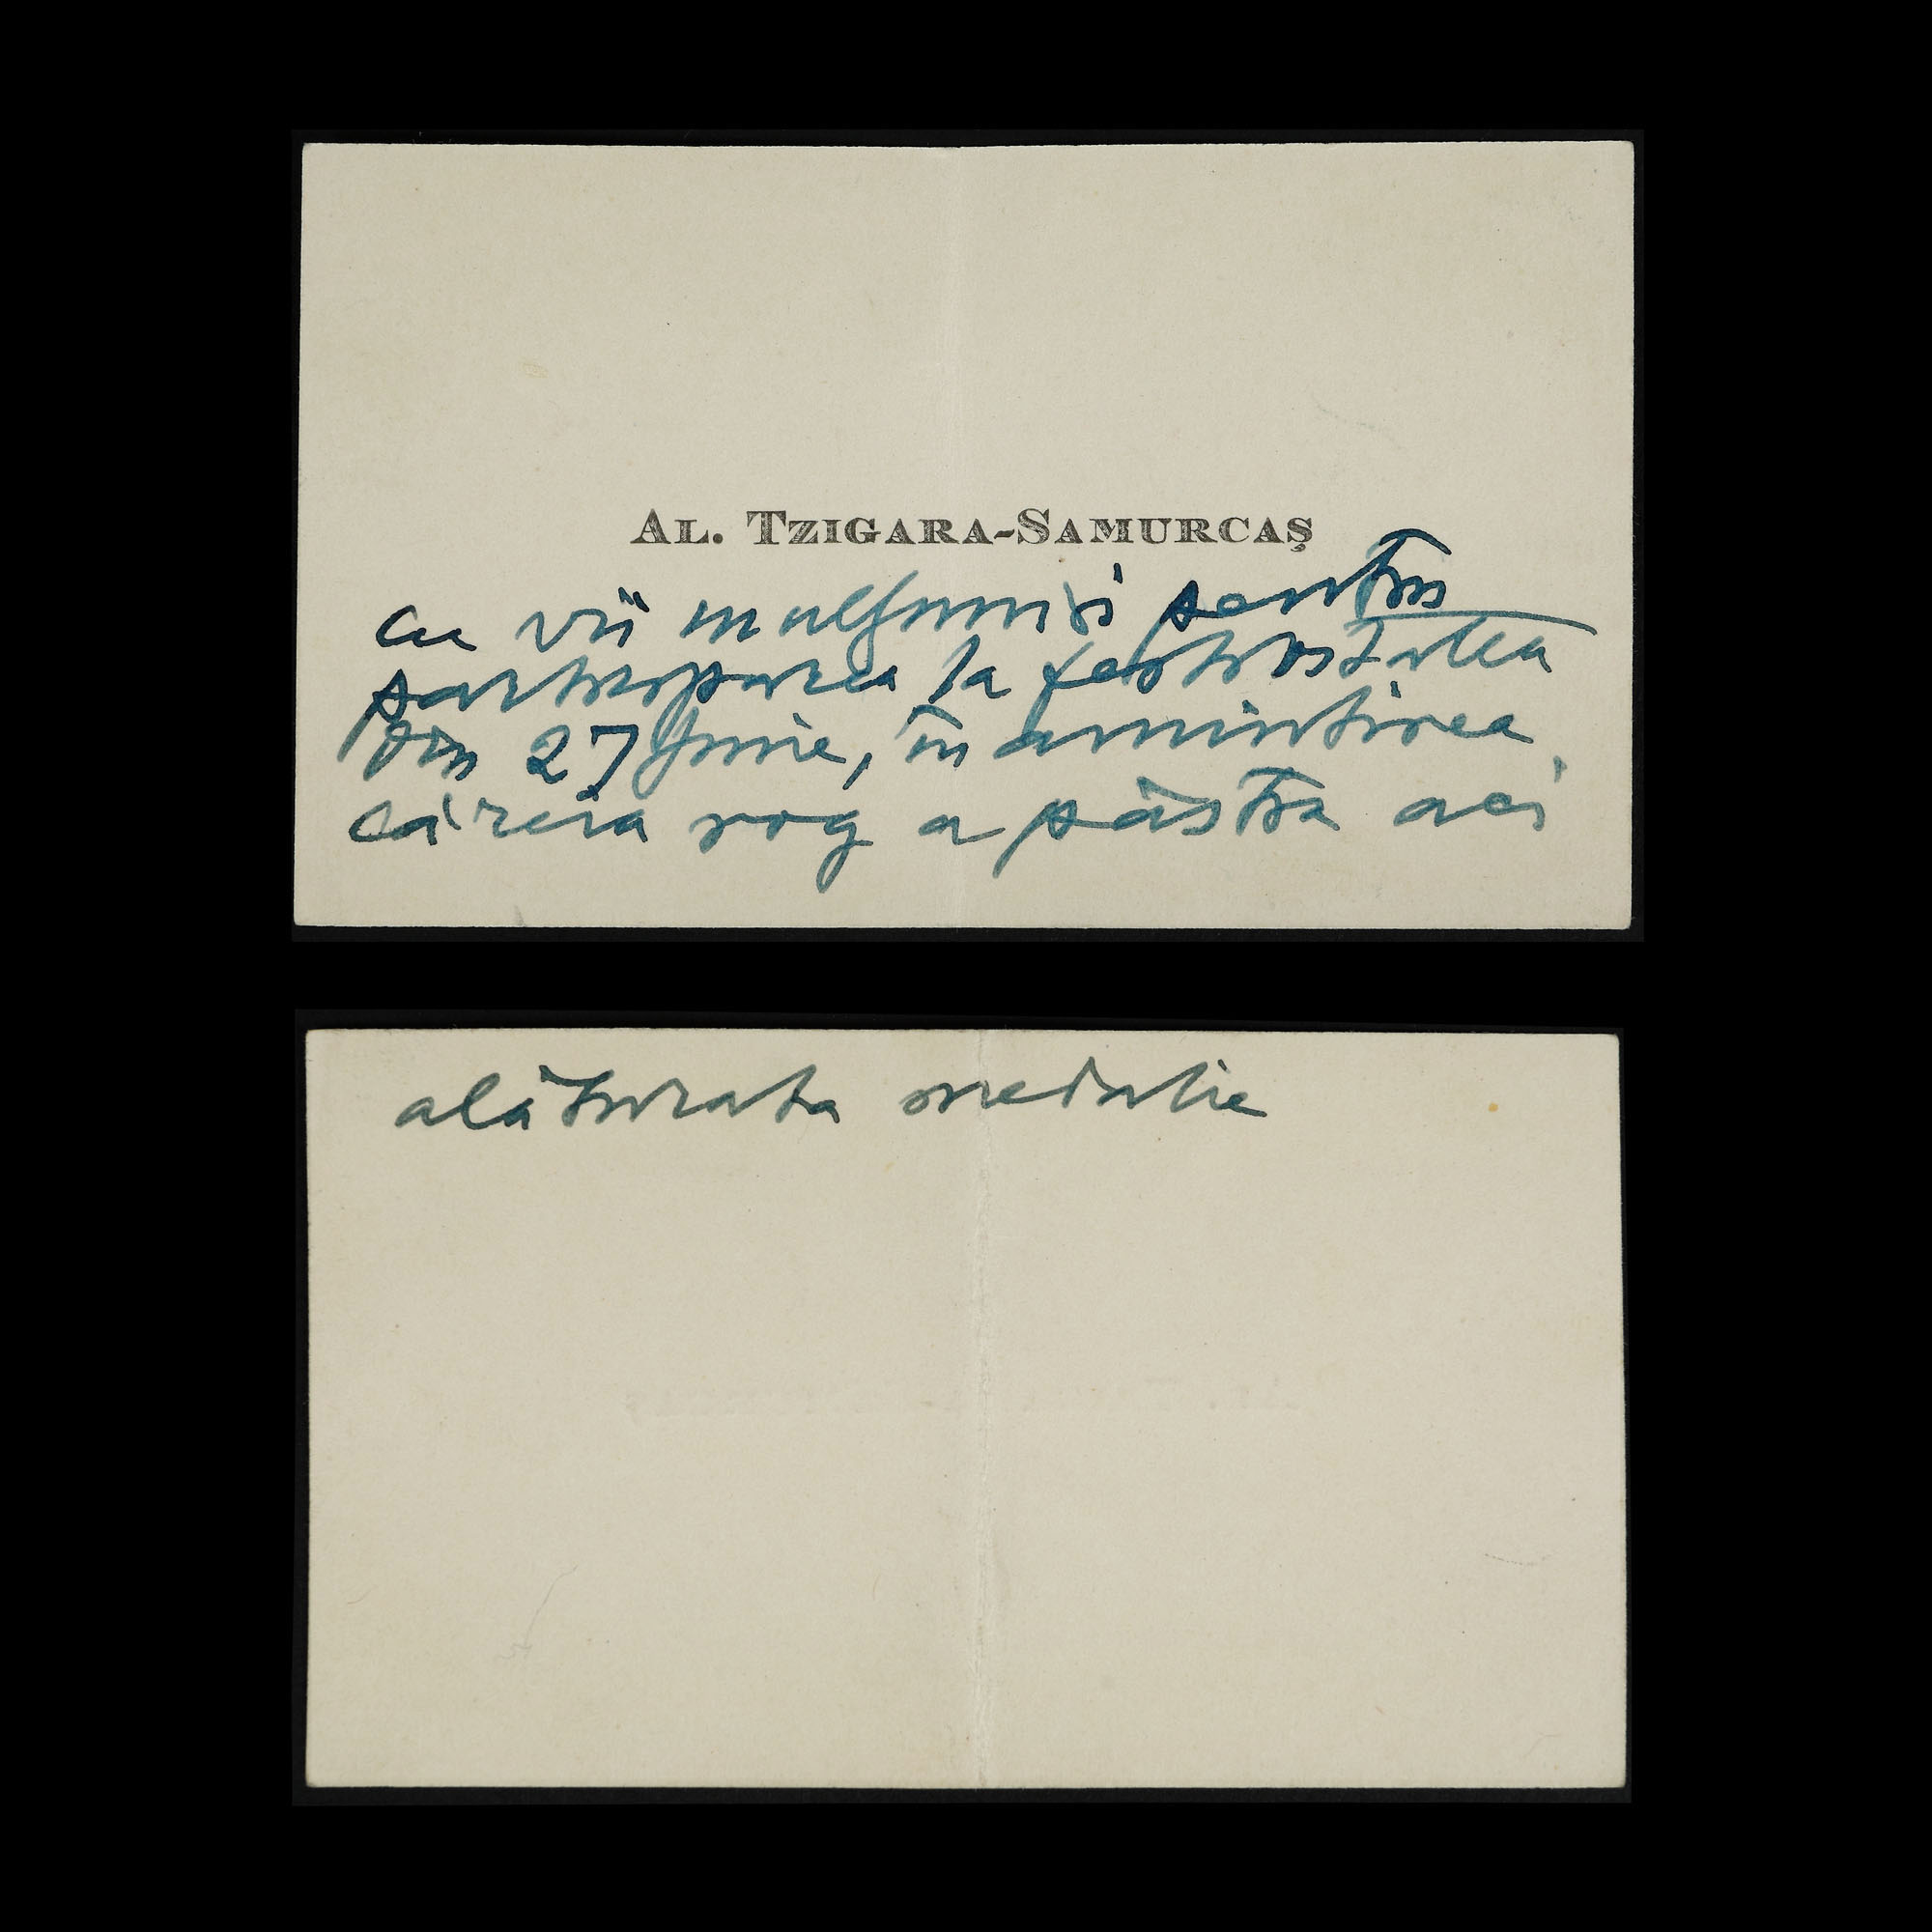 AL. TZIGARA-SAMURCAŞ
cu vii mulţumiri pentru
participarea la festivitatea
din 27 Junie, în amintirea
căreia rog a păstra aci
alăturata medalie